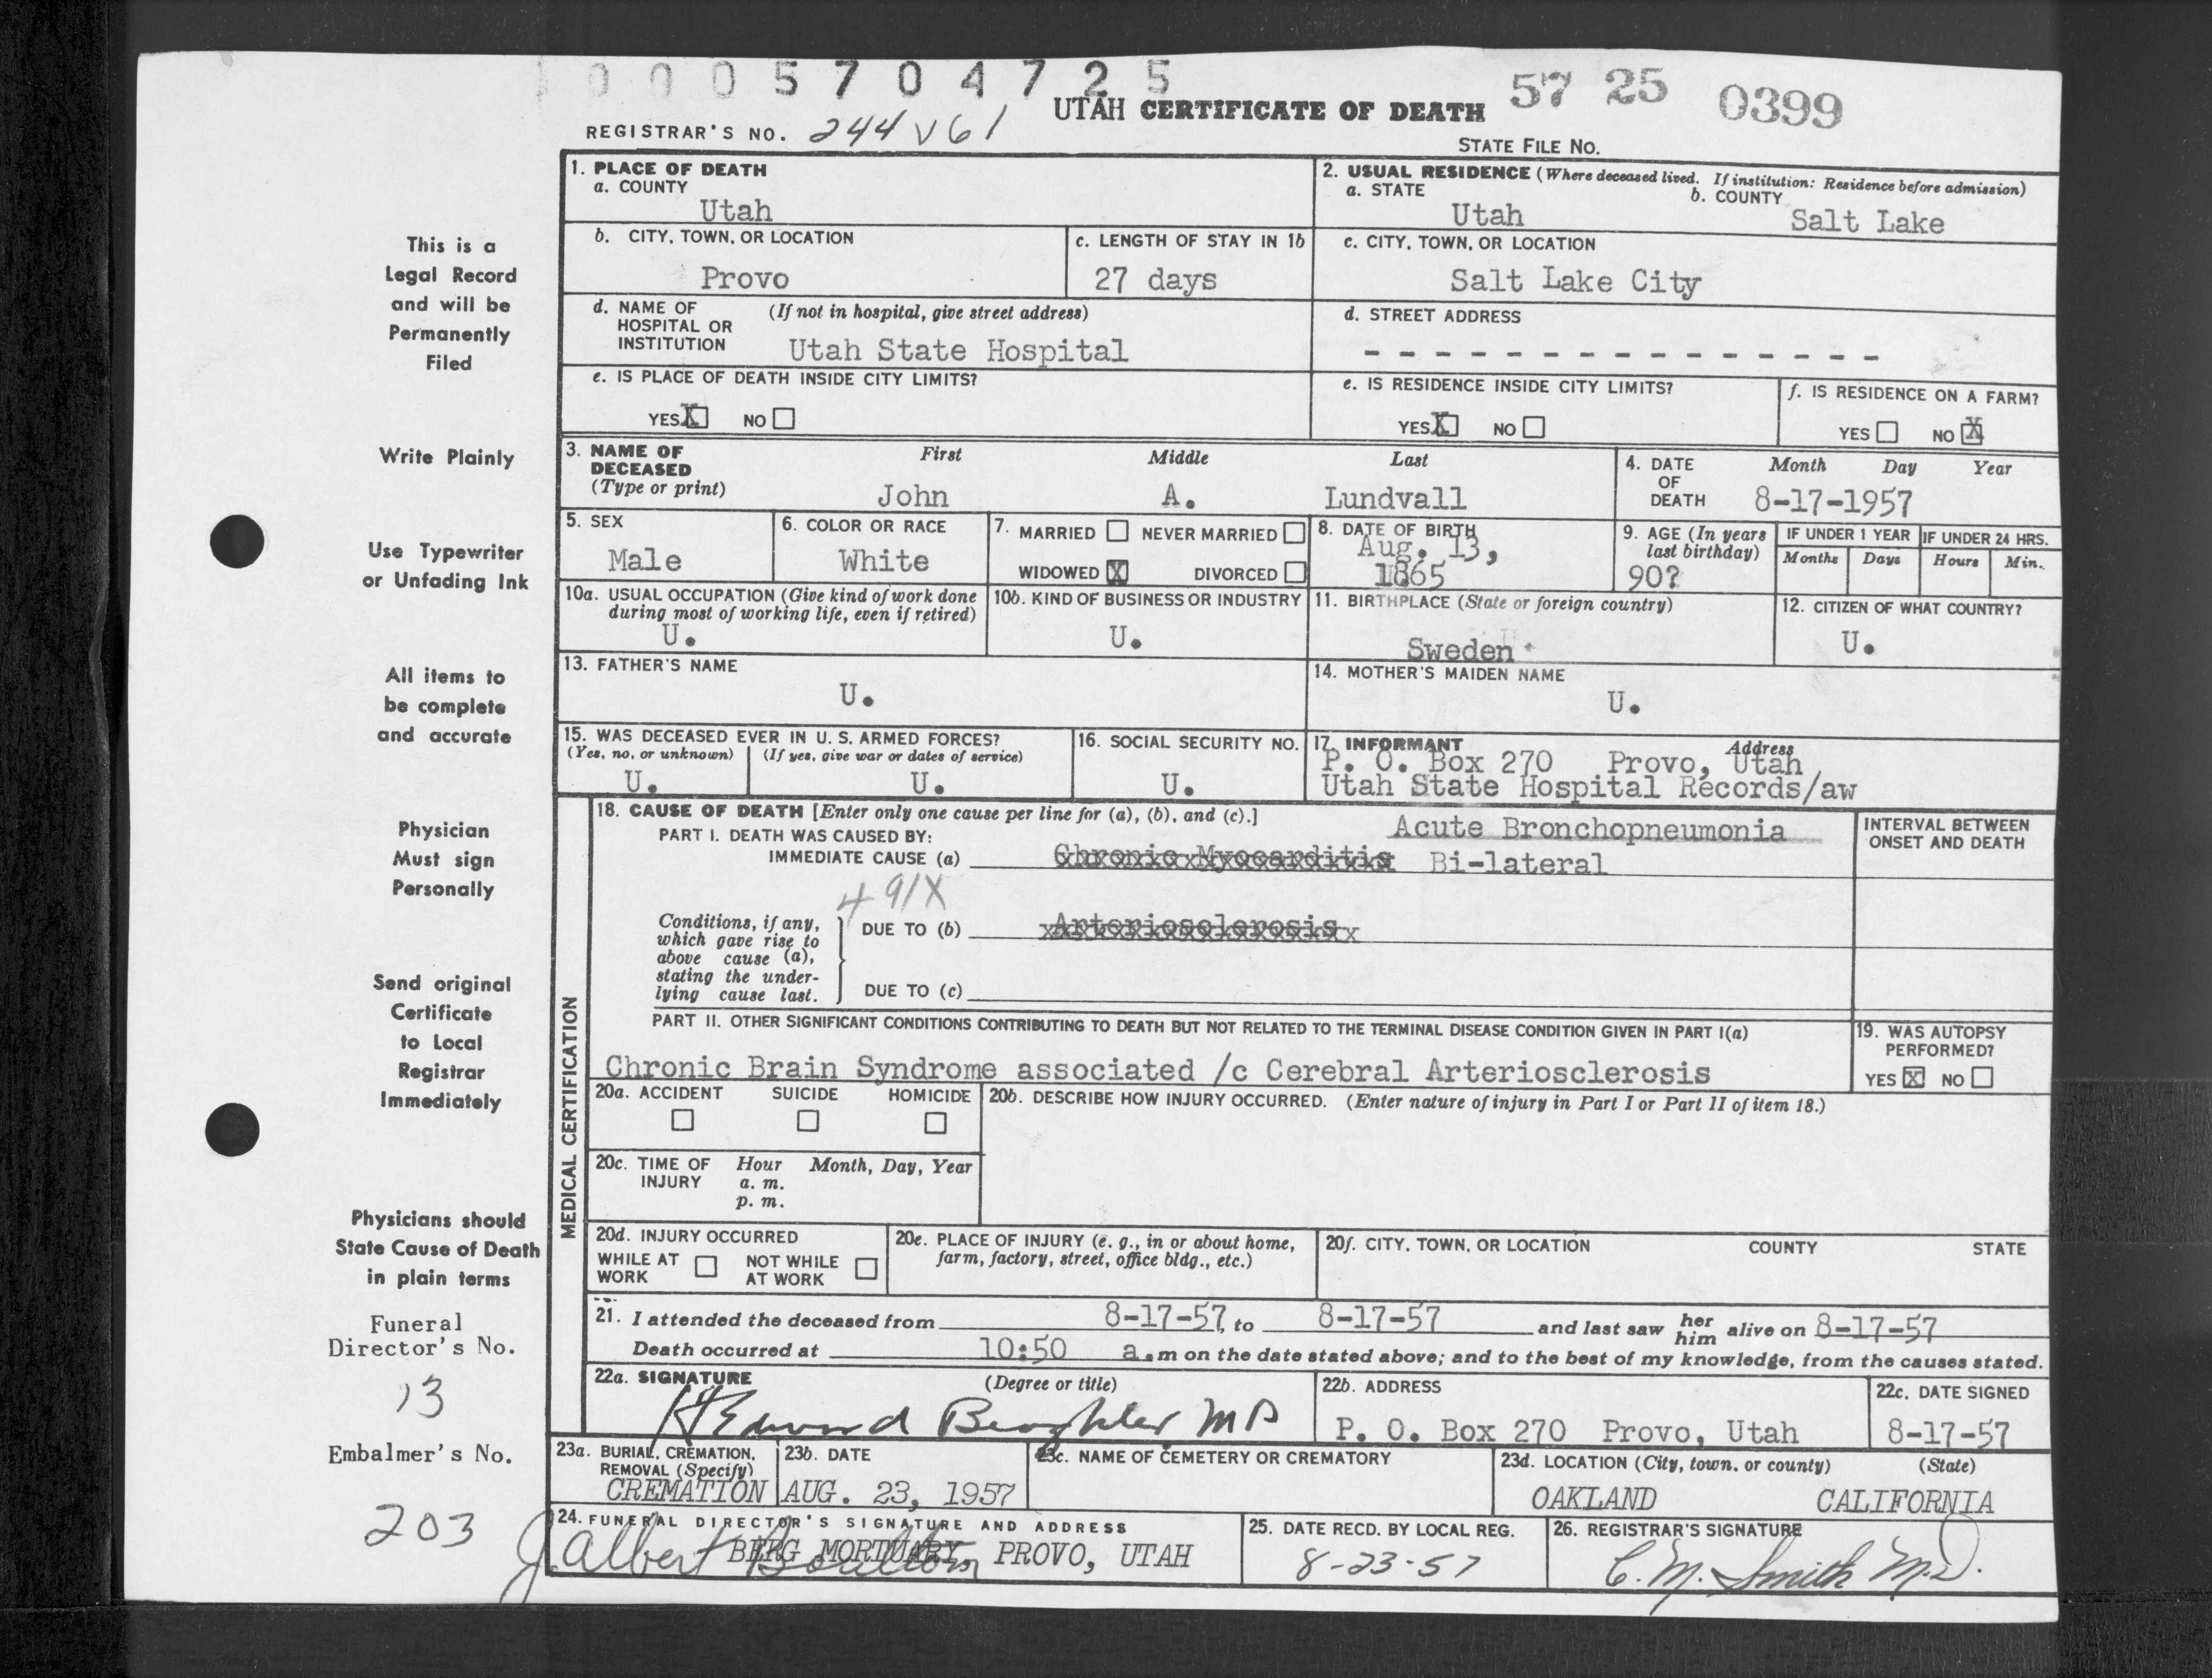 0005704725
57 25 0399
UTAH CERTIFICATE OF DEATH
REGISTRAR'S NO. 244 V61
STATE FILE NO.
1. PLACE OF DEATH
a. COUNTY
Utah
2. USUAL RESIDENCE (Where deceased lived. If institution: Residence before admission)
a. STATE b. COUNTY
Utah Salt Lake
b. CITY, TOWN, OR LOCATION
Provo
c. LENGTH OF STAY IN 1b
27 days
c. CITY, TOWN, OR LOCATION
Salt Lake City
d. NAME OF (If not in hospital, give street address)
HOSPITAL OR
INSTITUTION Utah State Hospital
d. STREET ADDRESS
- - - - - - - - - - - - - - - -
e. IS PLACE OF DEATH INSIDE CITY LIMITS?
YES X NO
e. IS RESIDENCE INSIDE CITY LIMITS?
YES X NO
f. IS RESIDENCE ON A FARM?
YES NO X
3. NAME OF First Middle Last
DECEASED
(Type or print) John A. Lundvall
4. DATE Month Day Year
OF
DEATH 8-17-1957
5. SEX
Male
6. COLOR OR RACE
White
7. MARRIED NEVER MARRIED
WIDOWED X DIVORCED
8. DATE OF BIRTH
Aug. 13,
1865
9. AGE (In years
last birthday)
90?
IF UNDER 1 YEAR
Months Days
IF UNDER 24 HRS.
Hours Min.
10a. USUAL OCCUPATION (Give kind of work done
during most of working life, even if retired)
U.
10b. KIND OF BUSINESS OR INDUSTRY
U.
11. BIRTHPLACE (State or foreign country)
Sweden
12. CITIZEN OF WHAT COUNTRY?
U.
13. FATHER'S NAME
U.
14. MOTHER'S MAIDEN NAME
U.
15. WAS DECEASED EVER IN U. S. ARMED FORCES?
(Yes, no, or unknown) (If yes, give war or dates of service)
U. U.
16. SOCIAL SECURITY NO.
U.
17. INFORMANT Address
P. O. Box 270 Provo, Utah
Utah State Hospital Records/aw
MEDICAL CERTIFICATION
18. CAUSE OF DEATH [Enter only one cause per line for (a), (b), and (c).]
PART I. DEATH WAS CAUSED BY: Acute Bronchopneumonia
IMMEDIATE CAUSE (a) Chronic Myocarditis Bi-lateral
491X
Conditions, if any,
which gave rise to
above cause (a),
stating the under-
lying cause last.
DUE TO (b) Arteriosclerosis
DUE TO (c)
INTERVAL BETWEEN
ONSET AND DEATH
PART II. OTHER SIGNIFICANT CONDITIONS CONTRIBUTING TO DEATH BUT NOT RELATED TO THE TERMINAL DISEASE CONDITION GIVEN IN PART I(a)
Chronic Brain Syndrome associated /c Cerebral Arteriosclerosis
19. WAS AUTOPSY
PERFORMED?
YES X NO
20a. ACCIDENT SUICIDE HOMICIDE
20b. DESCRIBE HOW INJURY OCCURRED. (Enter nature of injury in Part I or Part II of item 18.)
20c. TIME OF Hour Month, Day, Year
INJURY a. m.
p. m.
20d. INJURY OCCURRED
WHILE AT NOT WHILE
WORK AT WORK
20e. PLACE OF INJURY (e. g., in or about home,
farm, factory, street, office bldg., etc.)
20f. CITY, TOWN, OR LOCATION COUNTY STATE
21. I attended the deceased from 8-17-57, to 8-17-57 and last saw her him alive on 8-17-57
Death occurred at 10:50 a.m on the date stated above; and to the best of my knowledge, from the causes stated.
22a. SIGNATURE (Degree or title)
H Edward Beaghler MD
22b. ADDRESS
P. O. Box 270 Provo, Utah
22c. DATE SIGNED
8-17-57
23a. BURIAL, CREMATION,
REMOVAL (Specify)
CREMATION
23b. DATE
AUG. 23, 1957
23c. NAME OF CEMETERY OR CREMATORY
23d. LOCATION (City, town, or county) (State)
OAKLAND CALIFORNIA
24. FUNERAL DIRECTOR'S SIGNATURE AND ADDRESS
J. Albert Boulton
BERG MORTUARY, PROVO, UTAH
25. DATE RECD. BY LOCAL REG.
8-23-57
26. REGISTRAR'S SIGNATURE
C. M. Smith M.D.
This is a
Legal Record
and will be
Permanently
Filed
Write Plainly
Use Typewriter
or Unfading Ink
All items to
be complete
and accurate
Physician
Must sign
Personally
Send original
Certificate
to Local
Registrar
Immediately
Physicians should
State Cause of Death
in plain terms
Funeral
Director's No.
13
Embalmer's No.
203